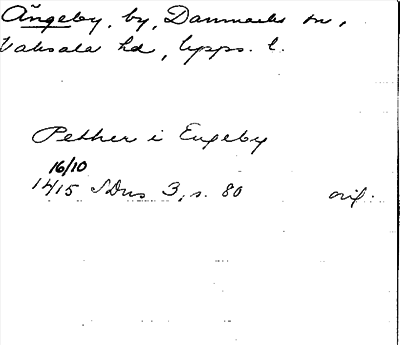 Ängeby, by, Danmarks sn,
Vaksala hd, Upps. l.
Pether i Engeby
16/10
1415 SDns 3, s. 80 orig.